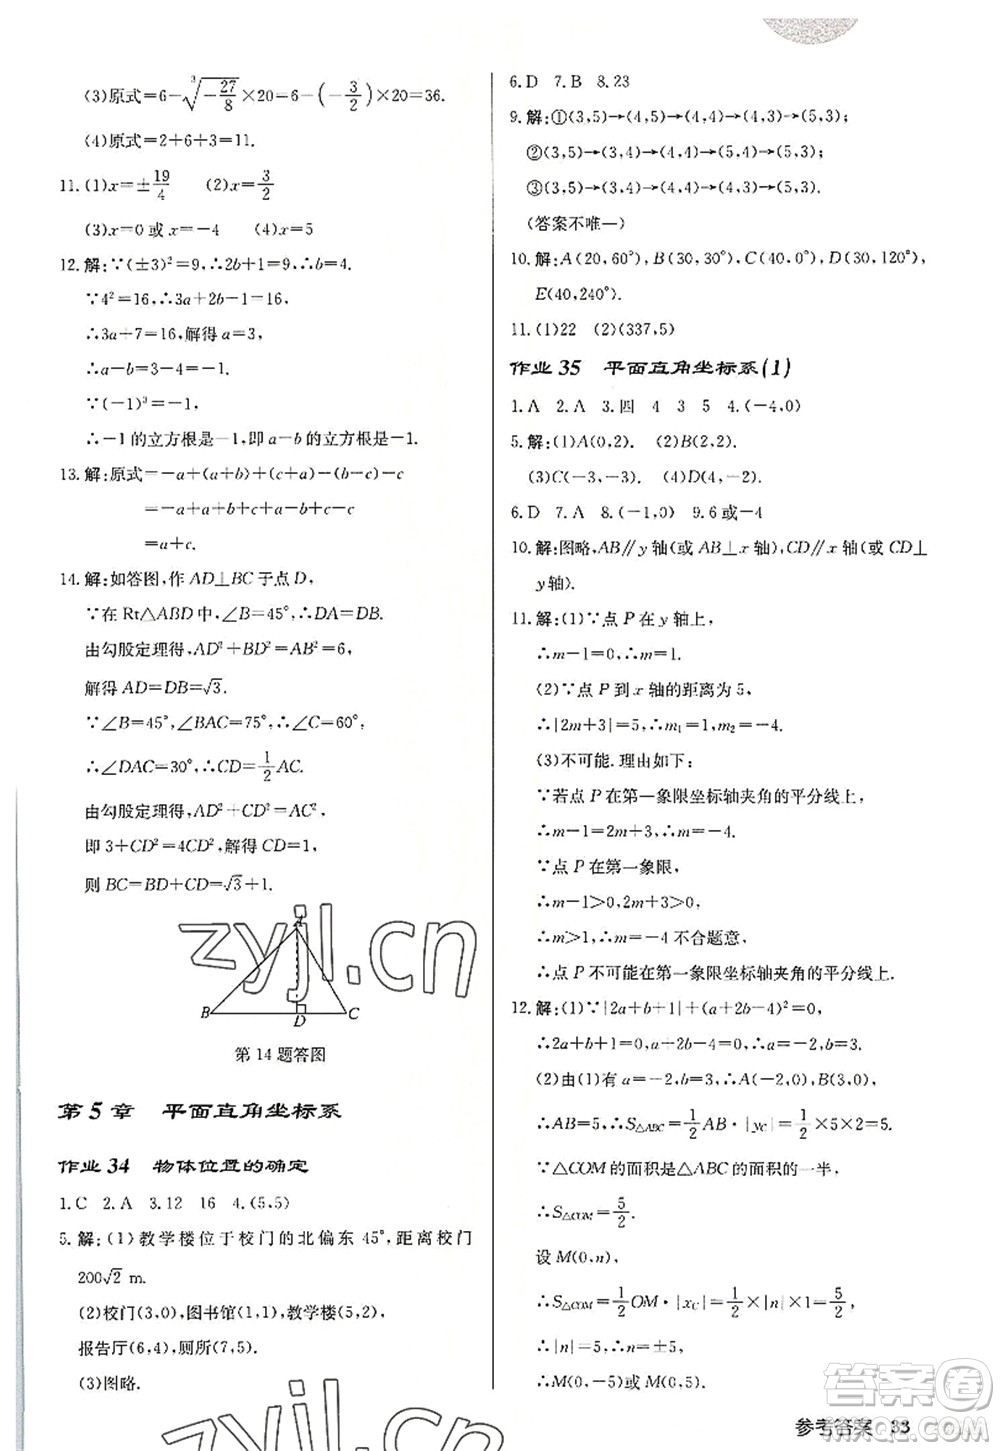 (3)原式=6-∛(-27/8)×20=6-(-3/2)×20=36.
(4)原式=2+6+3=11.
11.(1)x=±19/4 (2)x=3/2
(3)x=0或x=-4 (4)x=5
12.解:∵(±3)²=9,∴2b+1=9,∴b=4.
∵4²=16,∴3a+2b-1=16,
∴3a+7=16,解得a=3.
∴a-b=3-4=-1.
∵(-1)³=-1,
∴-1的立方根是-1,即a-b的立方根是-1.
13.解:原式=-a+(a+b)+(c-a)+a-b-c
=-a+a+b+c-a+a-b
=a+c.
14.解:如答图,作AD⊥BC于点D,
∵在Rt△ABD中,∠B=45°,∴DA=DB.
由勾股定理得,AD²+BD²=AB²=6,
解得AD=DB=√3.
∵∠B=45°,∠BAC=75°,∴∠C=60°,
∴∠DAC=30°,∴CD=1/2AC.
由勾股定理得,AD²+CD²=AC²,
即3+CD²=4CD²,解得CD=1,
则BC=BD+CD=√3+1.
zyjl.cn
A
B D C
第14题答图
第5章 平面直角坐标系
作业34 物体位置的确定
1.C 2.A 3.12 16 4.(5,5)
5.解:(1)教学楼位于校门的北偏东45°,距离校门
200√2 m.
(2)校门(3,0),图书馆(1,1),教学楼(5,2),
报告厅(6,4),厕所(7,5).
(3)图略.
6.D 7.B 8.23
9.解:①(3,5)→(4,5)→(4,4)→(4,3)→(5,3);
②(3,5)→(3,4)→(4,4)→(5,4)→(5,3);
③(3,5)→(3,4)→(4,4)→(4,3)→(5,3).
(答案不唯一)
10.解:A(20,60°),B(30,30°),C(40,0°),D(35,225°),
E(40,240°).
11.(1)22 (2)(337,5)
作业35 平面直角坐标系(1)
1.A 2.A 3.四 4 3 5 4.(-4,0)
5.解:(1)A(0,2). (2)B(2,2).
(3)C(-3,-3). (4)D(4,-2).
6.D 7.A 8.(-1,0) 9.6或-4
10.解:图略,AB∥y轴(或AB⊥x轴),CD∥x轴(或CD⊥
y轴).
11.解:(1)∵点P在y轴上,
∴m-1=0,∴m=1.
(2)∵点P到x轴的距离为5,
∴|2m+3|=5,∴m₁=1,m₂=-4.
(3)不可能.理由如下:
∵若点P在第一象限坐标轴夹角的平分线上,
∴m-1=2m+3,∴m=-4.
∵点P在第一象限,
∴m-1>0,2m+3>0,
∴m>1,∴m=-4不合题意,
∴点P不可能在第一象限坐标轴夹角的平分线上.
12.解:(1)∵|2a+b+1|+(a+2b-4)²=0,
∴2a+b+1=0,a+2b-4=0,∴a=-2,b=3.
(2)由(1)有a=-2,b=3,∴A(-2,0),B(3,0),
∴AB=5,∴S△ABC=1/2AB·|yC|=1/2×5×2=5.
∵△COM的面积是△ABC的面积的一半,
∴S△COM=5/2.
设M(0,n),
∴S△COM=1/2OM·|xC|=1/2×|n|×1=5/2,
∴|n|=5,∴n=±5,
∴M(0,-5)或M(0,5).
答案圈
参考答案 33